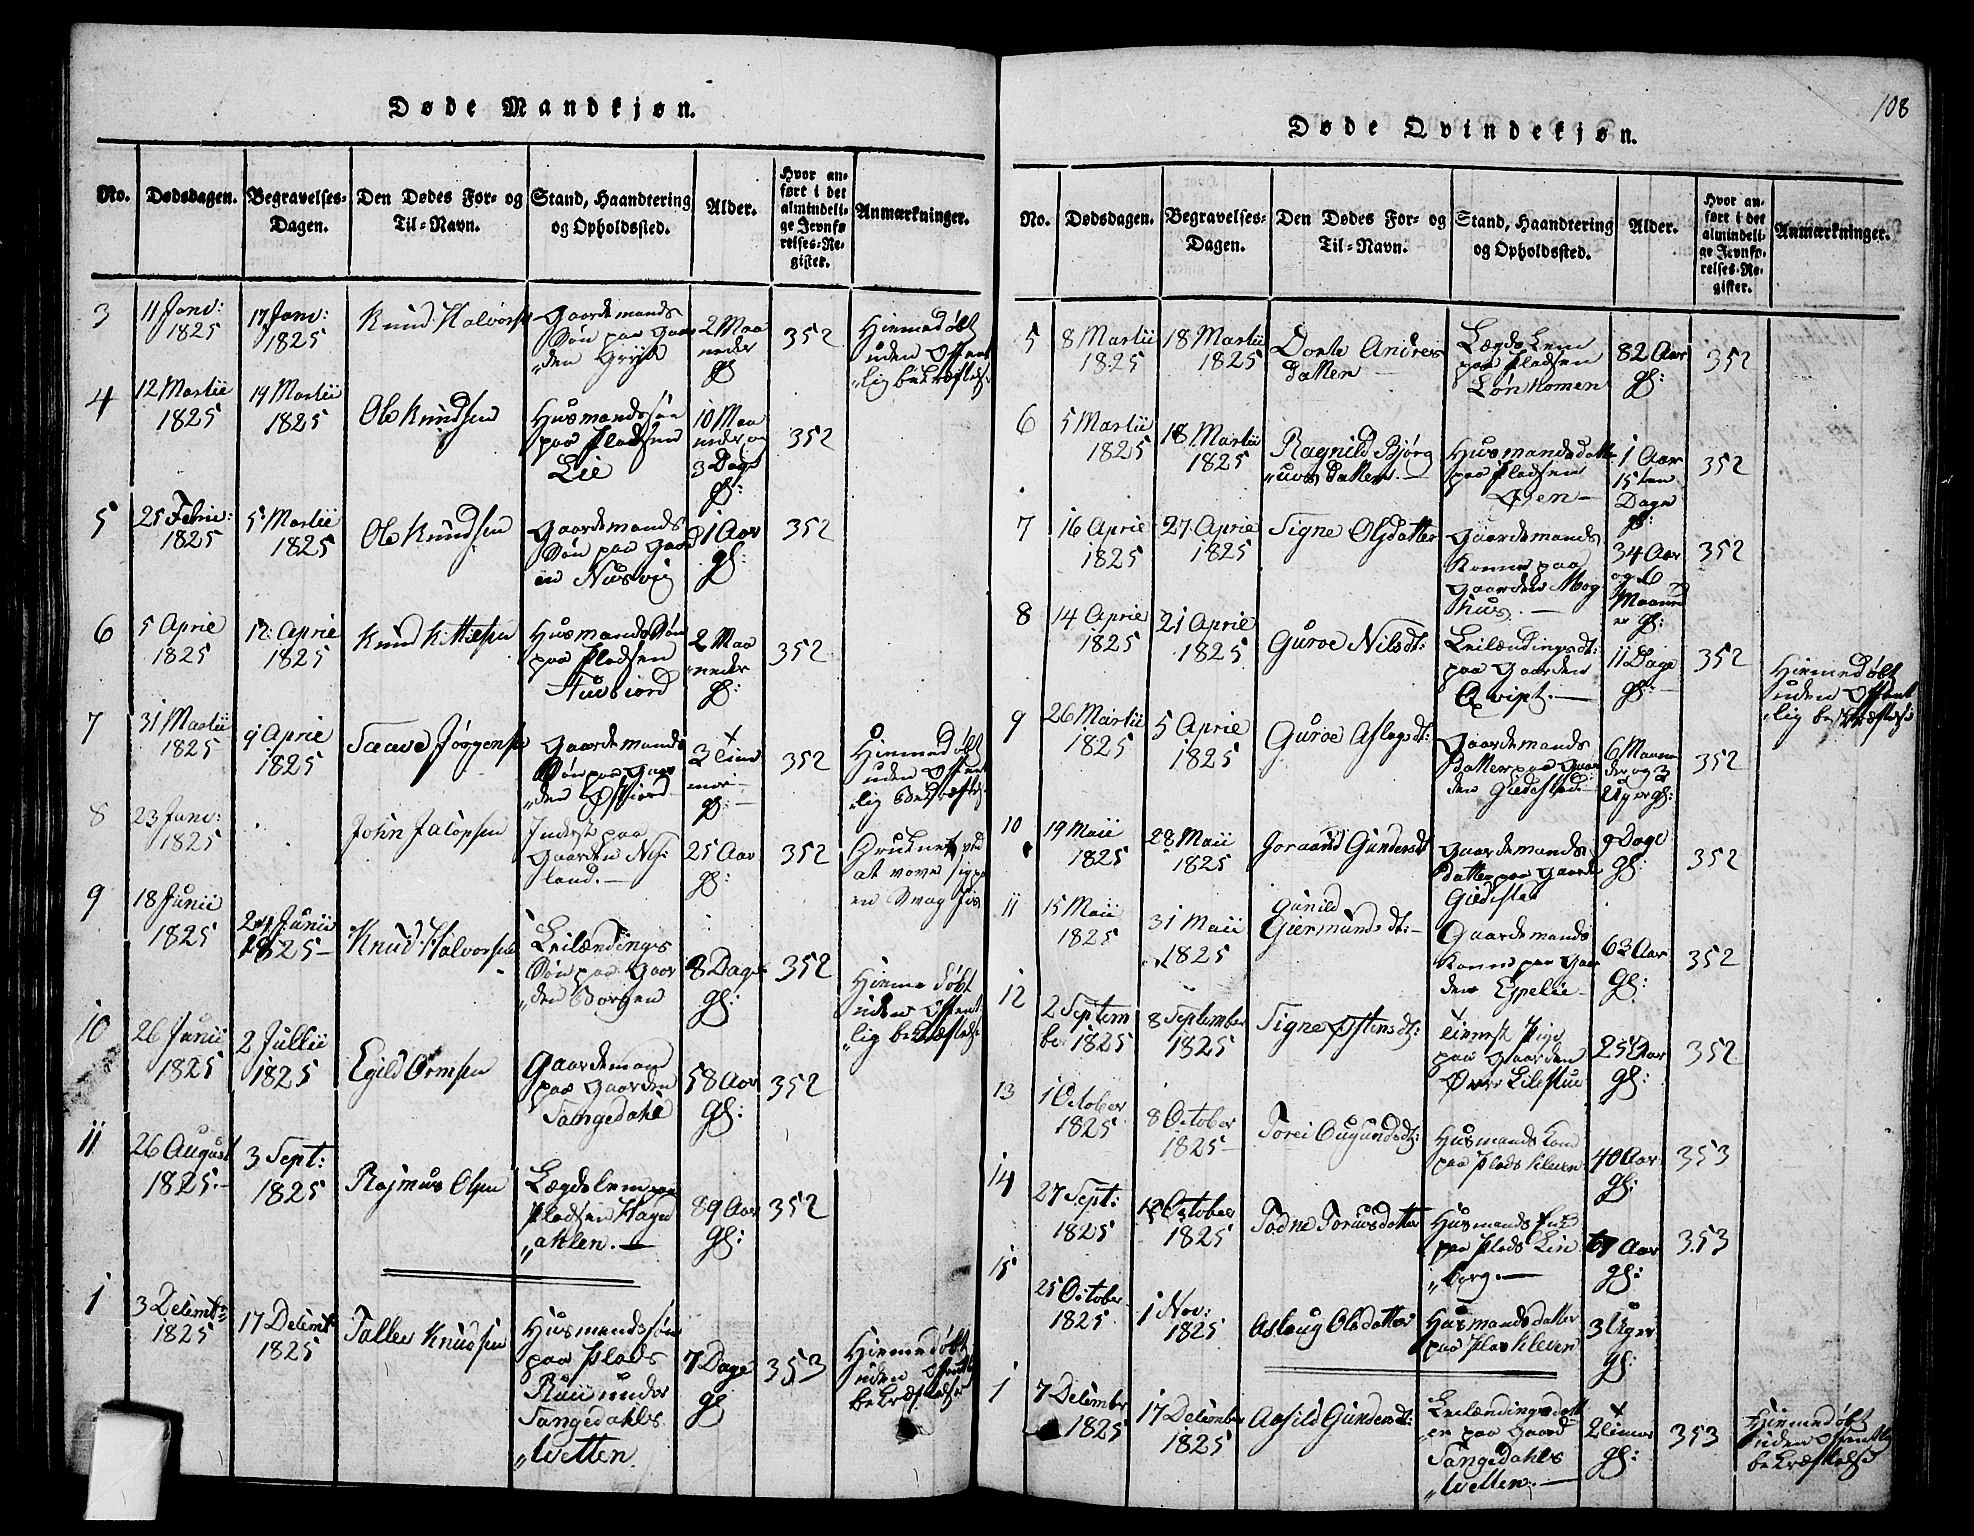 Døde Mandkjøn.
No.
Dødsdagen.
Begravelses-
Dagen.
Den Dødes For- og
Til-Navn.
Stand, Haandtering
og Opholdssted.
Alder.
Hvor an-
ført i det
almindeli-
ge Jevnfø-
relses-Re-
gister.
Anmærkninger.
3
11 Janv:
1825
17 Janv:
1825
Knud Halvors
Gaardemands
Søn paa Gaar
„den
2 Maa
neder
gl
352
Hiemedøbt
uden Offent
„lig bekræftels:
4
12 Martii
1825
19 Martii
1825
Ole Knudsen
Husmandssøn
paa Pladsen
Lie
10 Maa
neder og
3 Dage
gl:
352
5
25 Febr:
1825
5 Martii
1825
Ole Knudsen
Gaardemands
Søn paa Gaard
en Nusvig
1 Aar
gl:
352
6
5 April
1825
12 April
1825
Knud Kittelsen
HusmandsSøn
paa Pladsen
2 Maa
neder
gl:
352
7
31 Martii
1825
9 April
1825
Taave Jørgense
Gaardemands
Søn paa Gaar
„den
3 Tim
mer
gl:
352
Hiemedøbt
uden Offent
lig Bekræftels:
8
23 Janv:
1825
John Jacopsen
Inderst paa
Gaarden Nis
land.
25 Aar
gl:
352
Druknet ved
at vove sig paa
en Svag Jis
9
18 Junii
1825
24 Junii
1825
Knud Halvorsen
Leilændings
Søn paa Gaar
„den Borgen
8 Dage
gl:
352
Hieme døbt
uden Offent:
„lig bekræftels:
10
26 Junii
1825
2 Julii
1825
Egild Ormsen
Gaardemand
paa Gaarden
Tangedahl
58 Aar
gl:
352
11
26 August
1825
3 Sept:
1825
Rasmus Olsen
Lægdslem paa
Pladsen Hage
„ahlen.
89 Aar
gl:
352
1
3 Decembr
1825
17 Decembr
1825
Tallev Knudsen
Husmandssøn
paa Plads
Ruii under
Tangedahls
„Wetten.
7 Dage
gl
353
Hiemedøbt
uden Offentl:
bekræftelse
108
Døde Qvindekjøn.
No.
Dødsdagen.
Begravelses-
Dagen.
Den Dødes For- og
Til-Navn.
Stand, Haandtering
og Opholdssted.
Alder.
Hvor an-
ført i det
almindeli-
ge Jevnfø-
relses-Re-
gister.
Anmærkninger.
5
8 Martii
1825
18 Martii
1825
Dorte Andres
datter
LægdsLem
paa Pladsen
82 Aar
gl:
352
6
5 Martii
1825
18 Martii
1825
Ragnild Bjørg
„uvs datter.
Husmandsdatter
paa Pladsen
Øyen
1 Aar
15ten
Dage
gl:
352
7
16 April
1825
27 April
1825
Signe Olsdatter
Gaardemands
Konne paa
Gaarden Mog
hus.
34 Aar
og 6
Maaned
er gl:
352
8
14 April
1825
21 April
1825
Guroe Nilsdt:
Leilændingsdt:
paa Gaarden
Qvipt.
11 Dage
gl:
352
Hiemedøbt
uden Offent
„lig bekræftelse
9
26 Martii
1825
5 April
1825
Guroe Aslagsdt:
Gaardemands
datter paa Gaar
den Gildestad
6 Maane
der og 3
Uger gl:
352
10
19 Maii
1825
28 Maii
1825
Joraand Gundersdt
Gaardemands
datter paa Gaard
Gildestad
9 Dage
gl:
352
11
15 Maii
1825
31 Maii
1825
Gunild
Giermundsdt:
Gaardemands
Konne paa Gaar
den Espelie
63 Aar
gl:
352
12
2 Septem
ber 1825
8 September
1825
Signe Østensdt:
Tienst Pige
paa Gaarden
Øvre Lilestue
25 Aar
gl:
352
13
1 October
1825
8 October
1825
Torei Ougundsdt:
Husmands Kone
paa Plads Kleven
40 Aar
gl:
353
14
27 Sept:
1825
12 October
1825
Todne Toruvsdatter
Husmands
paa Plads Lin
„borg
67 Aar
gl:
353
15
25 October
1825
1 Nov:
1825
Aslaug Olsdatter
Husmandsdatter
paa Plas Kleven
3 Uger
gl:
1
7 December
1825
17 December
1825
Aasild Gundersdt:
Leilændingsdatt
er paa Gaard
Tangedahls
„Wetten.
2 Timer
gl:
353
Hiemedøbt
uden Offentlig
bekræftelse